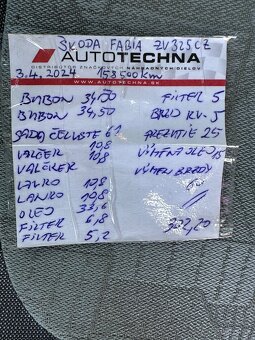 ŠKODA FABIA ZV325CZ
AUTOTECHNA
DISTRIBÚTOR ZNAČKOVÝCH NÁHRADNÝCH DIELOV
3.4.2024 153500km
WWW.AUTOTECHNA.SK
BUBON 34,50
BUBON 34,50
SADA ČELUSTE 61
VALČEK 10,8
VALČEK 10,8
LANKO 10,8
LANKO 10,8
OLEJ 33,6
FILTER 6,8
FILTER 5,2
FILTER 5
BRZD KV. 5
25
VÝMENA OLEJ 15
VÝMEN BRZDY
60
322,20